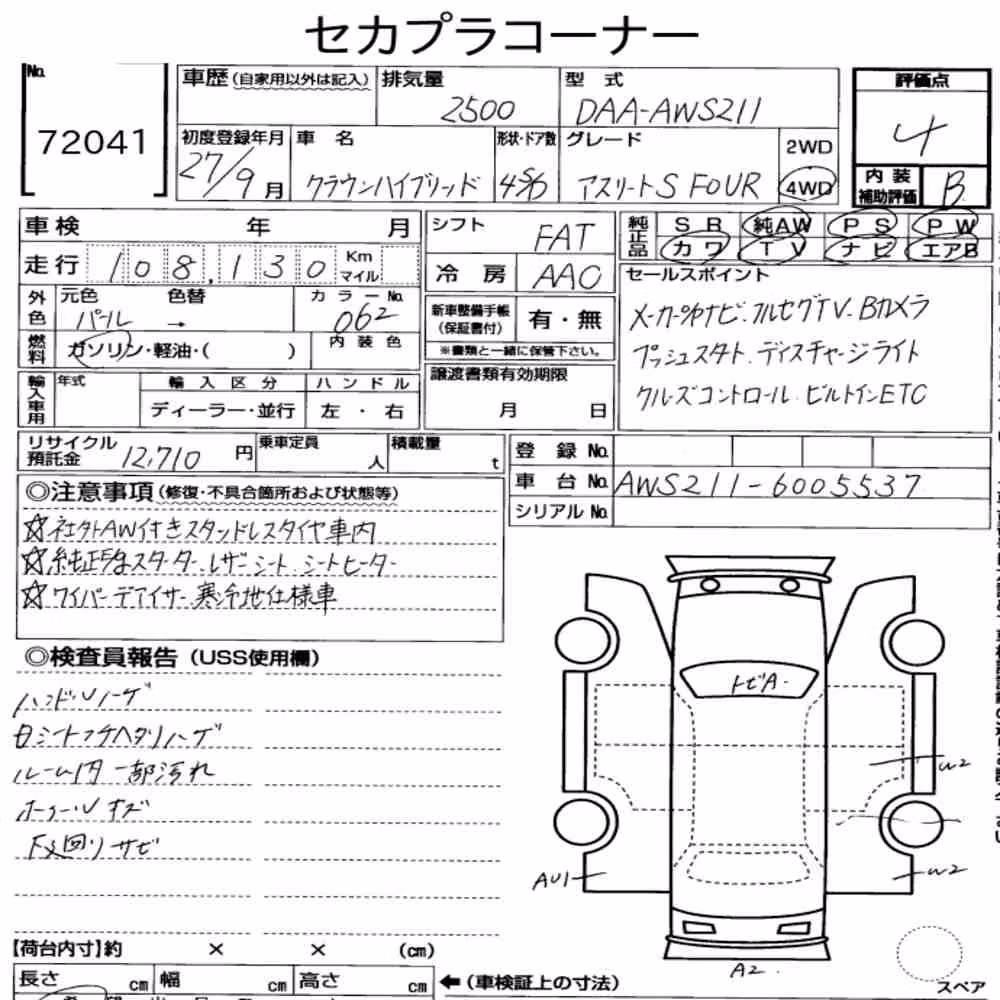 セカプラコーナー
No.
72041
車歴(自家用以外は記入)
排気量
2500
型 式
DAA-AWS211
評価点
4
初度登録年月
27/9月
車 名
クラウンハイブリッド
形状・ドア数
4SD
グレード
アスリートS FOUR
2WD
4WD
内 装
補助評価
B
車検 年 月
走行 108,130 Km
マイル
シフト
FAT
冷 房
AAC
純正品
SR 純AW PS PW
カワ TV ナビ エアB
外色
元色 色替
パール →
カラーNo.
062
燃料
ガソリン・軽油・( )
内 装 色
新車整備手帳
(保証書付)
有・無
※書類と一緒に保管下さい。
セールスポイント
メーカーナビ、フルセグTV、Bカメラ
プッシュスタート、ディスチャージライト
クルーズコントロール、ビルトインETC
輸入車用
年式
輸 入 区 分
ディーラー・並行
ハ ン ド ル
左 ・ 右
譲渡書類有効期限
月 日
リサイクル
預託金 12,710 円
乗車定員
人
積載量
t
登 録 No.
車 台 No. AWS211-6005537
シリアル No.
◎注意事項(修復・不具合箇所および状態等)
☆社外AW付きスタッドレスタイヤ車内
☆純正スターター、レザーシート、シートヒーター
☆ワイパーデアイサー、寒冷地仕様車
◎検査員報告(USS使用欄)
ハンドルハゲ
シートフチヘタリハゲ
ルーム内一部汚れ
ホイールキズ
下廻りサビ
トビA
W2
W2
AU1
A2
【荷台内寸】約 × × (cm)
長さ cm 幅 cm 高さ cm
←(車検証上の寸法)
スペア